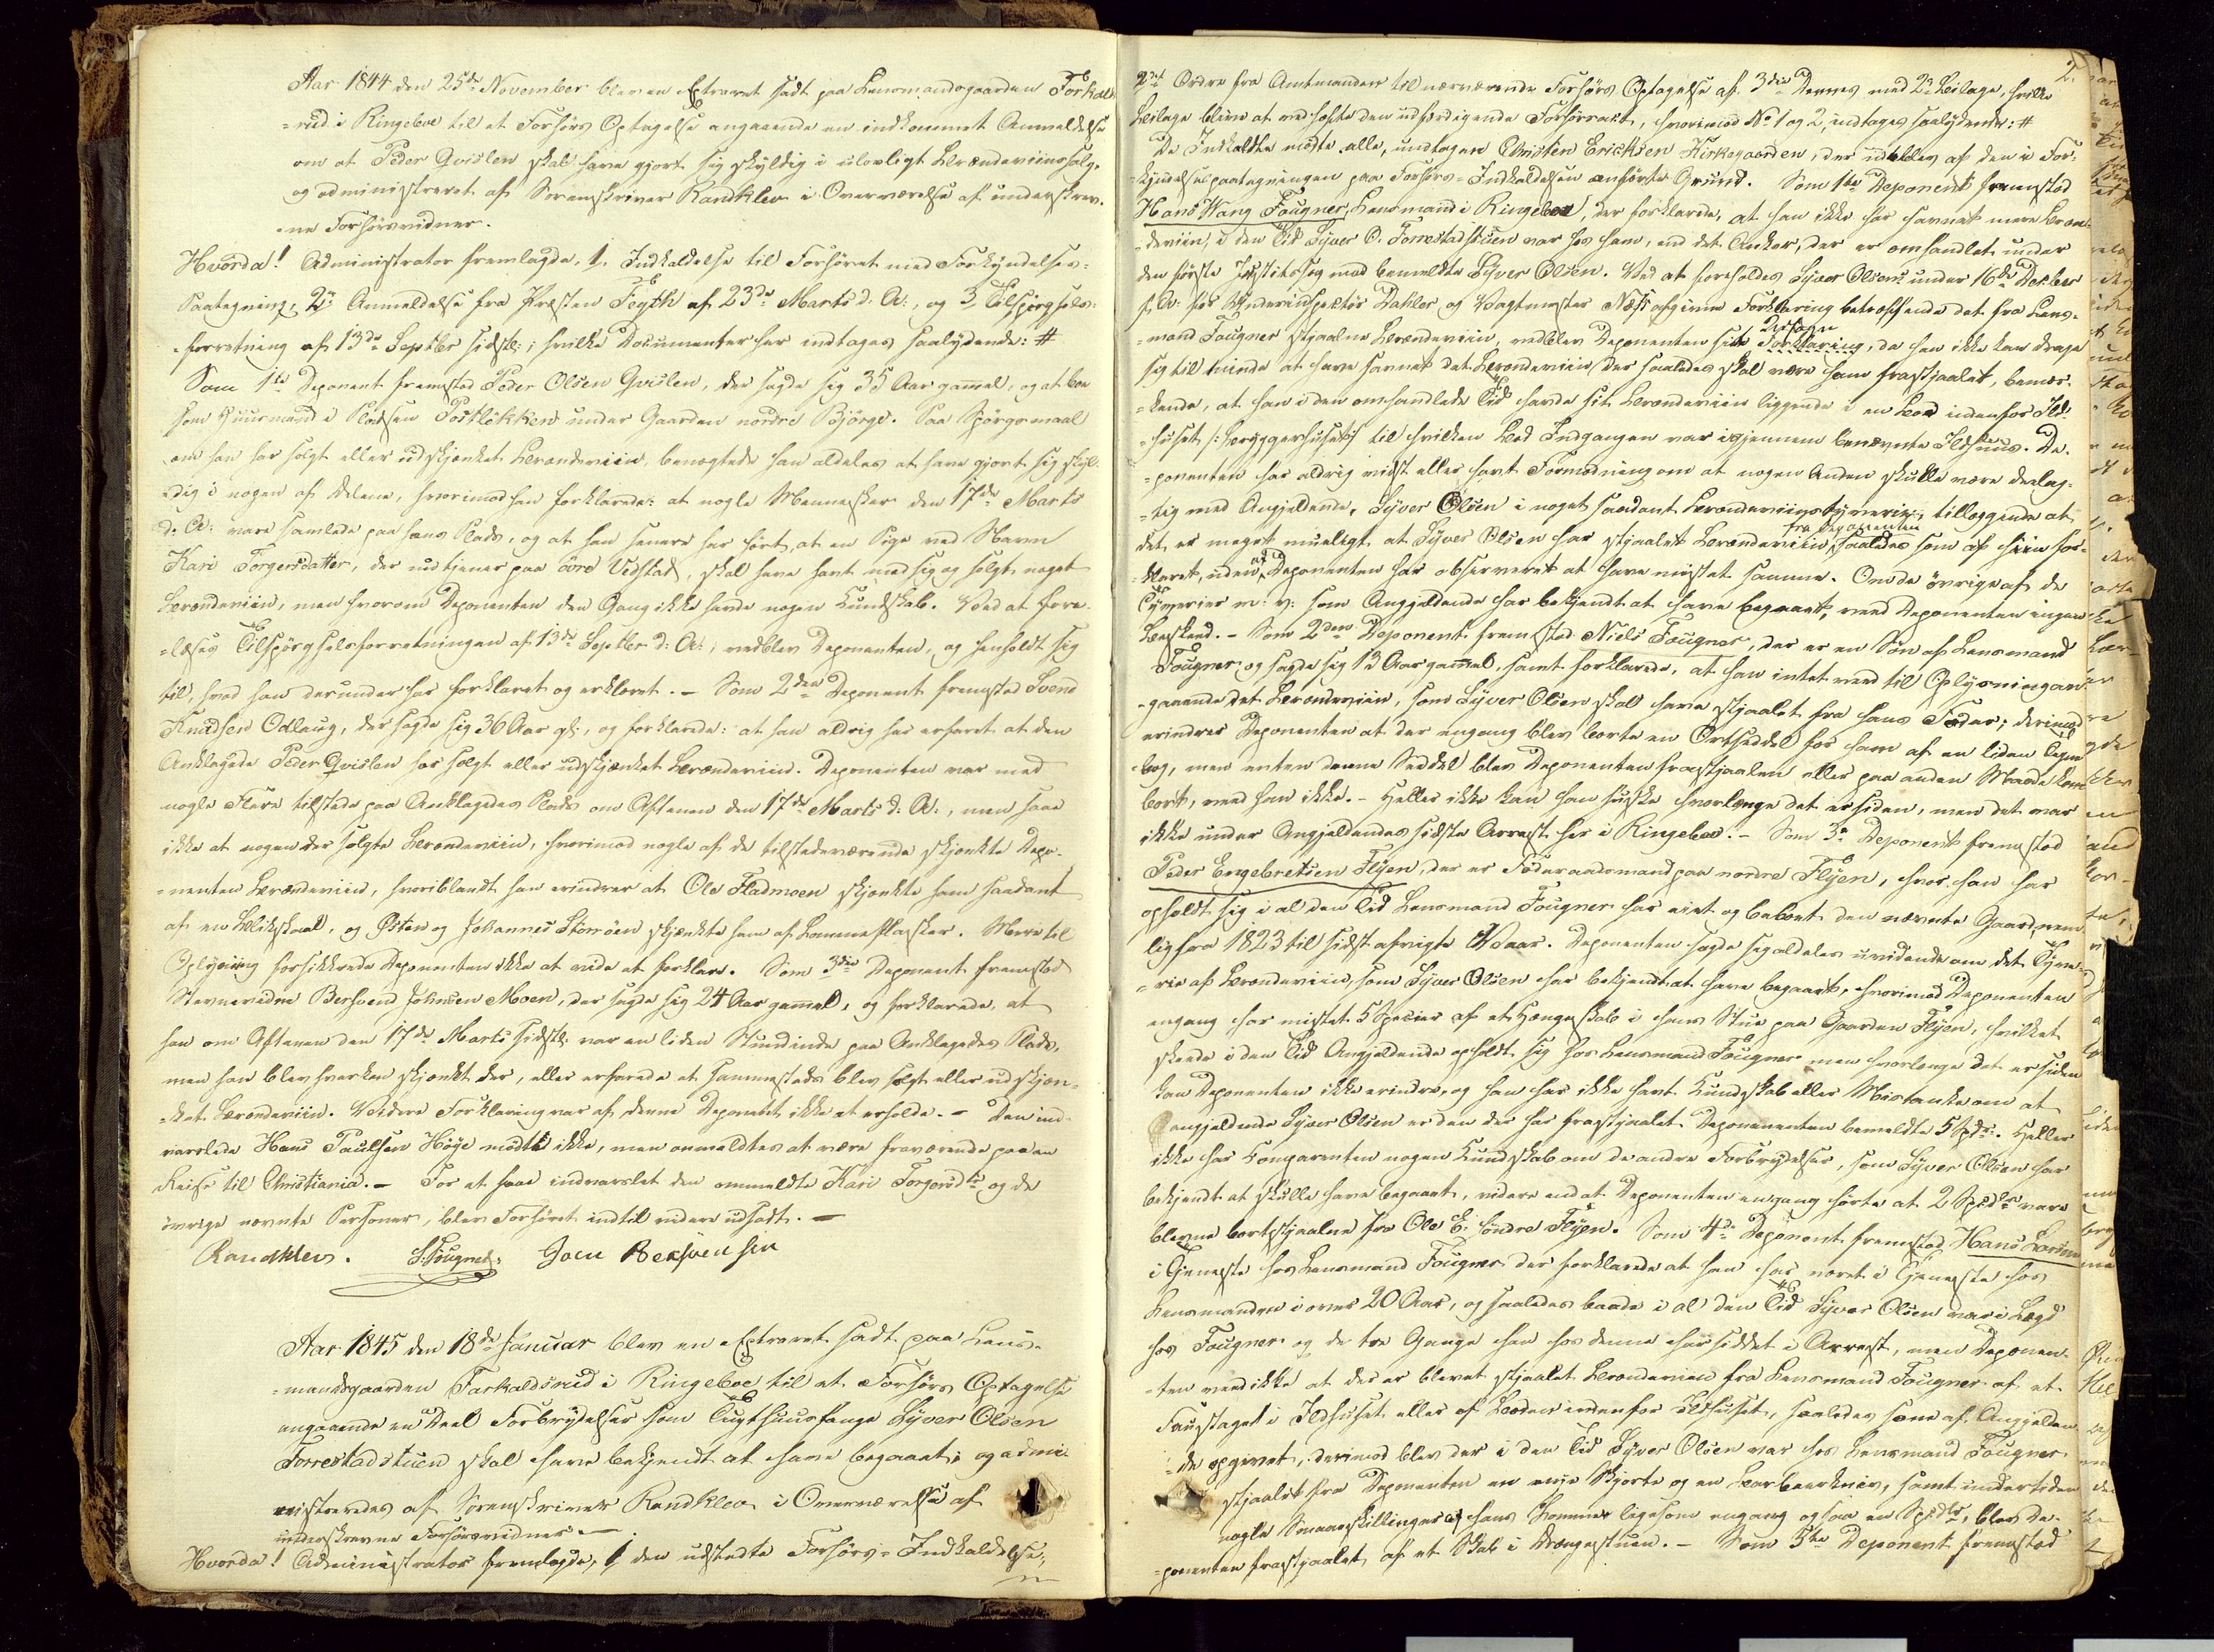 Aar 1844 den 25de November blev en Extraret sadt paa Lensmandsgaarden Forkals-
=rud i Ringeboe til et Forhørs Optagelse angaaende en indkommet Anmeldelse
om at Peder Qvislen skal have gjort sig skyldig i ulovligt Brændeviinssalg,
og administreret af Sorenskriver Randklev i Overværelse af underskrev-
ne Forhørsvidner.
Hvorda! Administrator fremlagde, 1, Indkaldelse til Forhøret med Forkyndelses-
Paategning, 2, Anmeldelse fra Præsten Feyth af 23de Marts d. A:, og 3 Tilspørgsels-
=forretning af 13de Septbr sidstl:; hvilke Documenter her indtages saalydende: #
Som 1ste Deponent fremstod Peder Olsen Qvislen, der sagde sig 35 Aar gammel, og at boe
som Huusmand i Pladsen Postløkken under Gaarden nordre Bjørge. Paa Spørgsmaal
om han har solgt eller udskjænket Brændeviin, benægtede han aldeles at have gjort sig skyl-
=dig i nogen af Delene, hvorimod han forklarede: at nogle Mennesker den 17de Marts
d. A: vare samlede paa hans Plads, og at han senere har hørt, at en Pige ved Navn
Kari Torgersdatter, der nu tjener paa øvre Vidstad, skal have havt med sig og solgt noget
Brændeviin, men hvorom Deponenten den Gang ikke havde nogen Kundskab. Ved at fore-
=læses Tilspørgselsforretningen af 13de Septbr d: A:, vedblev Deponenten, og henholdt sig
til, hvad han derunder har forklaret og erklæret. - Som 2den Deponent fremstod Svend
Knudsen Odlaug, der sagde sig 36 Aar gl:, og forklarede: at han aldrig har erfaret at den
Anklagede Peder Qvislen har solgt eller udskjænket Brændeviin. Deponenten var med
nogle Flere tilstede paa Anklagedes Plads om Aftenen den 17de Marts d: A:, men saae
ikke at nogen der solgte Brændeviin, hvorimod nogle af de tilstedeværende skjænkte Depo-
=nenten Brændeviin, hvoriblandt han erindrer at Ole Fladmoen skjænkte ham saadant
af en Blikskaal, og Østen og Johannes Storøen skjænkte ham af Lommeflasker. Mere til
Oplysning forsikkrede Deponenten ikke at vide at forklare. Som 3die Deponent fremstod
Stevnevidne Bersvend Johnsen Moen, der sagde sig 24 Aar gammel, og forklarede, at
han om Aftenen den 17de Marts sidstl. var en liden Stund inde paa Anklagedes Plads,
men han blev hverken skjænket der, eller erfarede at sammesteds blev solgt eller udskjæn-
=ket Brændeviin. Videre Forklaring var af denne Deponent ikke at erholde. - Den ind-
varslede Hans Paulsen Høye mødte ikke, men anmeldtes at være fraværende paa en
Reise til Christiania. - For at faae indvarslet den ommeldte Kari Torgersdtr og de
øvrige nævnte Personer, blev Forhøret indtil videre udsadt. -
Randklev. S. Fougner. Joen Bersvensen
Aar 1845 den 18de Januar blev en Extraret sadt paa Lens-
=mandsgaarden Forkaldsrud i Ringeboe til et Forhørs Optagelse
angaaende en Deel Forbrydelser som Tugthuusfange Syver Olsen
Torrestadstuen skal have bekjendt at have begaaet; og admi-
nistreredes af Sorenskriver Randklev i Overværelse af
underskrevne Forhørsvidner -
Hvorda! Administrator fremlagde, 1 den udstedte Forhørs-Indkaldelse,
2.
2det Ordre fra Amtmanden til nærværende Forhørs Optagelse af 3die Dennes med 2de Bilage, hvilke
Bilage blive at vedhæfte den udfærdigende Forhørsact, hvorimod No 1 og 2, indtages saalydende: #
De Indkaldte mødte alle, undtagen Christen Ericksen Kirkegaarden, der udeblev af den i For-
=kyndelsespaategningen paa Forhørs-Indkaldelsen anførte Grund. Som 1ste Deponent fremstod
Hans Wang Fougner, Lensmand i Ringeboe, der forklarede, at han ikke har savnet mere Bræn-
=deviin, i den Tid Syver O. Torrestadstuen var hos ham, end det Anker, der er omhandlet under
den første Justitssag mod bemeldte Syver Olsen. Ved at foreholdes Syver Olsens under 16de Decbr
f. A: for Underinspektør Dahler og Vagtmester Næss afgivne Forklaring betræffende det fra Lens-
=mand Fougner stjaalne Brændeviin, vedblev Deponenten sit Udsagn Forklaring, da han ikke kan drage
sig til minde at have savnet det Brændeviin, der saaledes skal være ham frastjaalet, bemær-
=kende, at han i den omhandlede Tid havde sit Brændeviin liggende i en Bod indenfor Ild-
=huset /: Bryggerhuset :/ til hvilken Bod Indgangen var igjennem benævnte Ildhuus. De-
=ponenten har aldrig vidst eller havt Formodning om at nogen Anden skulle være deelag-
=tig med Angjældende, Syver Olsen i noget saadant Brændeviinstyverie, tillæggende at
det er meget mueligt at Syver Olsen har stjaalet Brændeviin fra Deponenten saaledes som af hiin for-
=klaret, uden at Deponenten har observeret at have mistet samme. Om de øvrige af de
Tyverier m: v: som Angjældende har bekjendt at have begaaet, veed Deponenten ingen
Beskeed. - Som 2den Deponent fremstod Niels Fougner, der er en Søn af Lensmand
Fougner, og sagde sig 13 Aar gammel, samt forklarede, at han intet veed til Oplysning an-
=gaaende det Brændeviin, som Syver Olsen skal have stjaalet fra hans Fader; derimod
erindrer Deponenten at der engang blev borte en Ortseddel for ham af en liden Tegne-
bog, men enten denne Seddel blev Deponenten frastjaalen eller paa anden Maade kom
bort, veed han ikke. - Heller ikke kan han huske hvorlænge det er siden, men det var
ikke under Angjældendes sidste Arrest her i Ringeboe. - Som 3die Deponent fremstod
Peder Engebretsen Flyen, der er Føderaadsmand paa nordre Flyen, hvor han har
opholdt sig i al den Tid Lensmand Fougner har eiet og beboet den nævnte Gaard, nem-
lig fra 1823 til sidst afvigte Vaar. Deponenten sagde sig aldeles uvidende om det Tyve-
=rie af Brændeviin, som Syver Olsen har bekjendt at have begaaet, hvorimod Deponenten
engang har mistet 5 Specier af et Hængeskab i hans Stue paa Gaarden Flyen, hvilket
skeede i den Tid Angjældende opholdt sig hos Lensmand Fougner, men hvorlænge det er siden
kan Deponenten ikke erindre, og han har ikke havt Kundskab eller Mistanke om at
angjældende Syver Olsen er den der har frastjaalet Deponenten bemeldte 5 Spdr. Heller
ikke har Comparenten nogen Kundskab om de andre Forbrydelser, som Syver Olsen har
bekjendt at skulle have begaaet, videre end at Deponenten engang hørte at 2 Spdlr vare
blevne bortstjaalne fra Ole E. søndre Flyen. Som 4de Deponent fremstod Hans Larsen
i Tjeneste hos Lensmand Fougner der forklarede at han har været i Tjeneste hos
Lensmanden i over 20 Aar, og saaledes baade i al den Tid Syver Olsen var i Lægd
hos Fougner og de tre Gange han hos denne har siddet i Arrest, men Deponen-
=ten veed ikke at der er blevet stjaalet Brændeviin fra Lensmand Fougner af et
Faustaget i Ildhuset eller af Boden indenfor Ildhuset, saaledes som af Angjælden-
=de opgivet, derimod blev der i den Tid Syver Olsen var hos Lensmand Fougner
stjaalet fra Deponenten en Skjorte og en Barbeerkniv, samt undertiden
nogle Smaaeskillinger af hans Lommer ligesom engang ogsaa en Spdlr, blev De-
=ponenten frastjaalet af et Skab i Drengestuen. - Som 5te Deponent fremstod